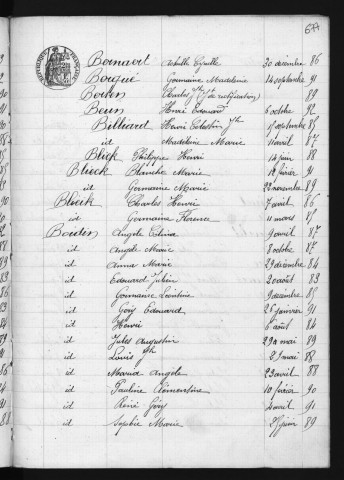 677
RÉPUBLIQUE FRANÇAISE
Bornaert Achille Cyrille 30 décembre 86
Borgué Germaine Madeleine 14 septembre 91
Charles (jt de rectification) 89
Beun Henri Edouard 6 octobre 92
Billiard Henri Célestin jh septembre 85
id Madeleine Marie 1 avril 87
Blieck Philippe Henri 14 juin 88
Blieeck Blanche Marie 12 février 91
id Germaine Marie 22 novembre 89
Blieck Charles Henri 7 avril 86
id Germaine Florence 11 mars 85
Boeden Angèle Célina 9 avril 87
id Angèle Marie 8 octobre 87
id Anna Marie 29 décembre 84
id Edouard Julien 20 août 83
id Germaine Léontine 9 décembre 85
id Gery Edouard 25 janvier 91
id Henri 6 août 84
id Jules Augustin 29 mai 89
id Louis jh 25 mai 88
id Maria Angèle 23 avril 88
id Pauline Clémentine 10 février 90
id René Géry avril 91
id Sophie Marie 25 juin 89